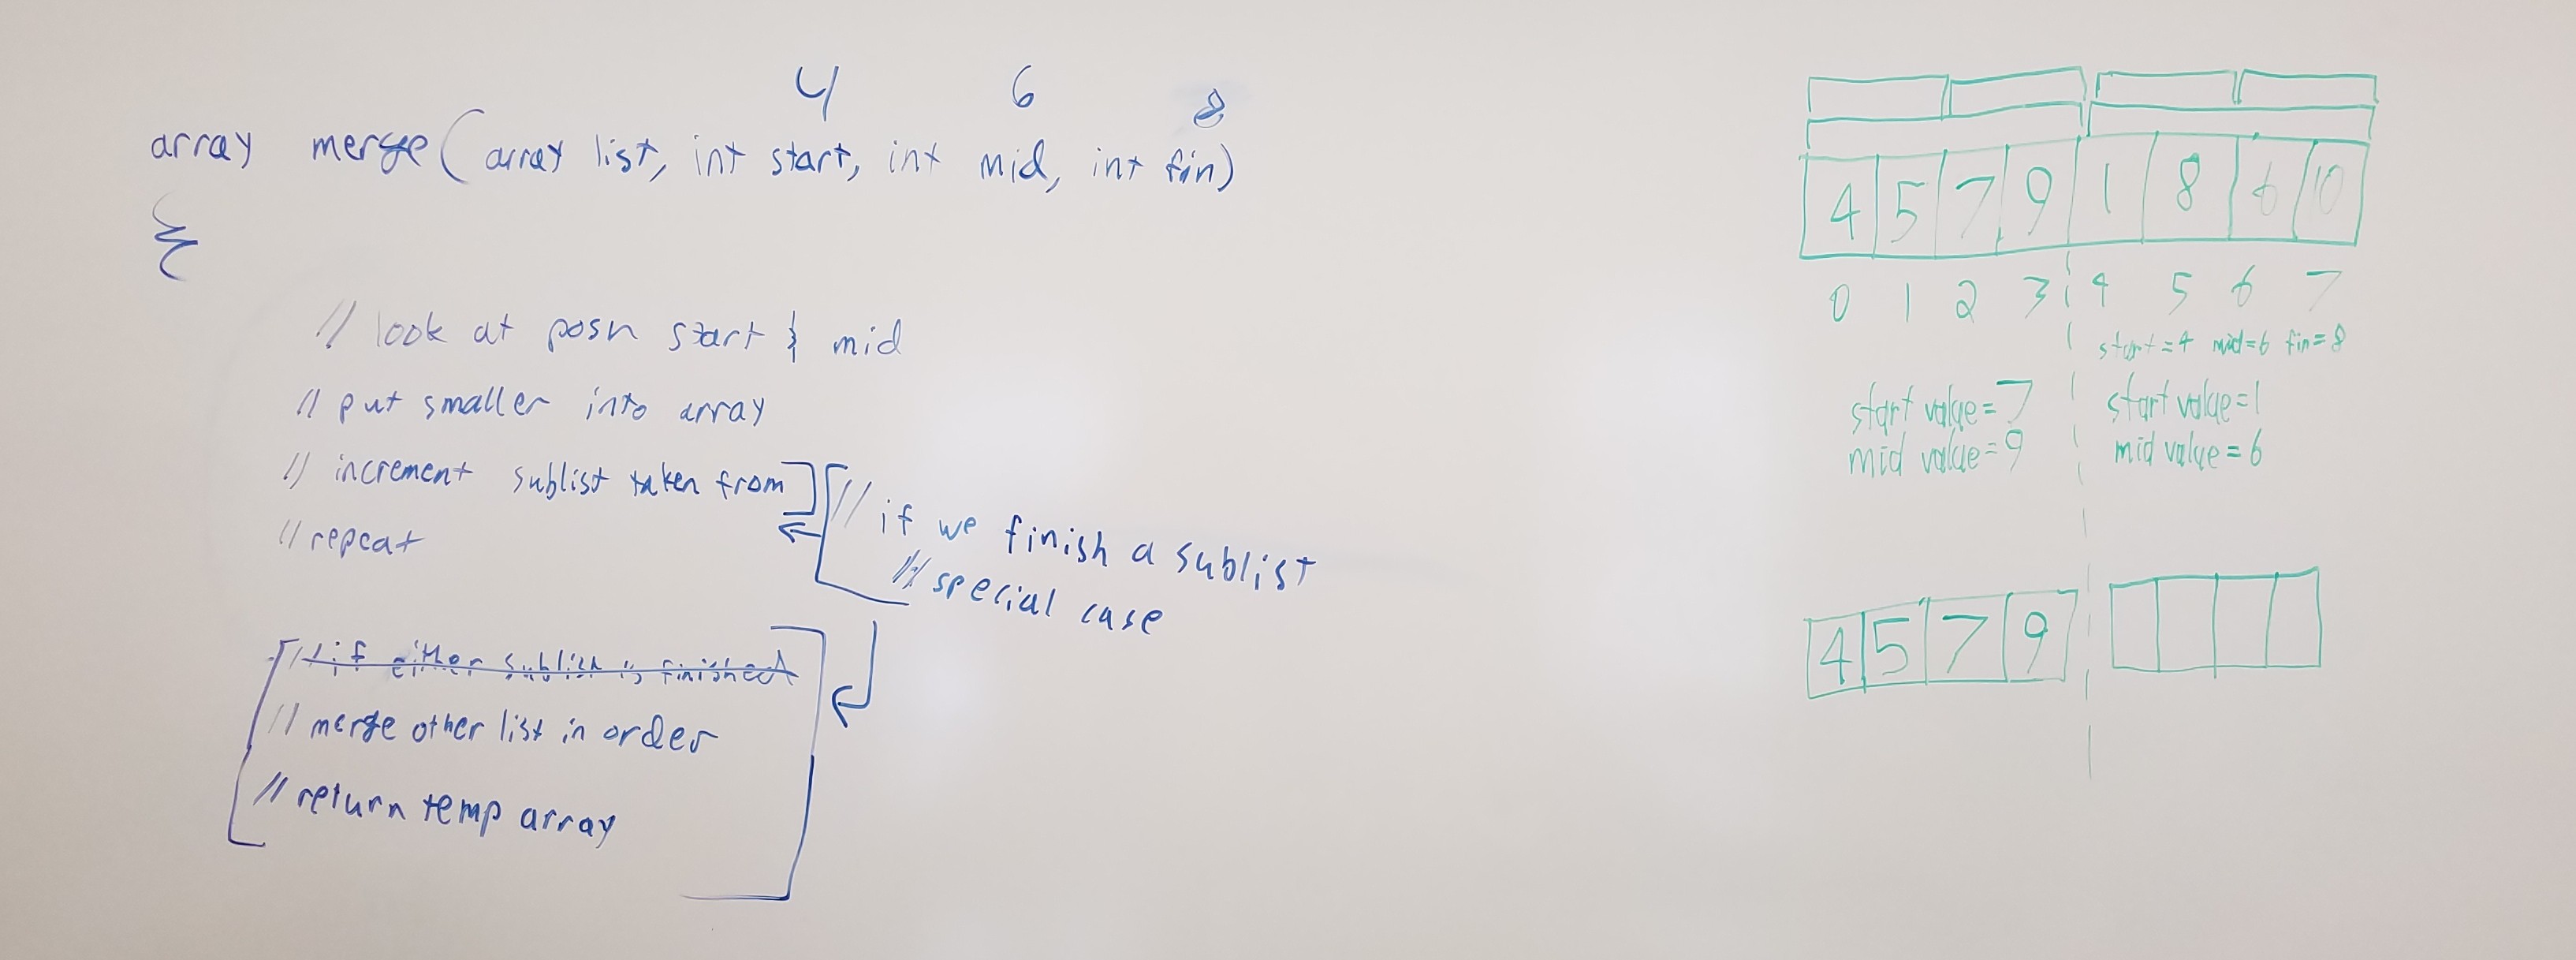 4 6 8
array merge(array list, int start, int mid, int fin)
{
// look at posn start & mid
// put smaller into array
// increment sublist taken from
// repeat
// if we finish a sublist
// special case
// if either sublist is finished
// merge other list in order
// return temp array
4 5 7 9 1 8 6 10
0 1 2 3 4 5 6 7
start=4 mid=6 fin=8
start value=7
mid value=9
start value=1
mid value=6
4 5 7 9